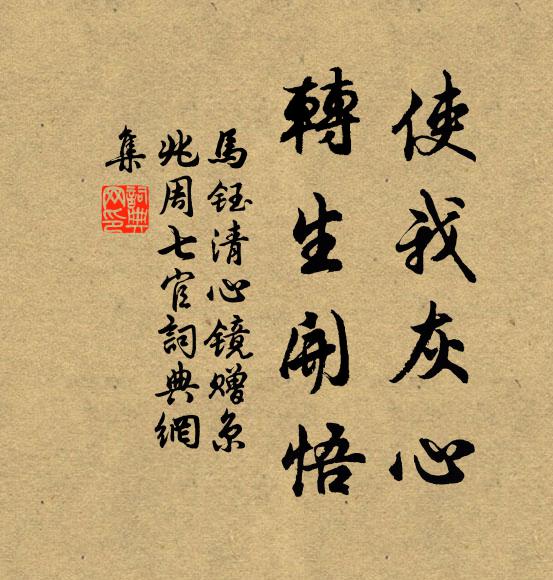 使我灰心
轉生開悟
馬鈺清心镜赠京
兆周七官詞典網
集
詞典
网印